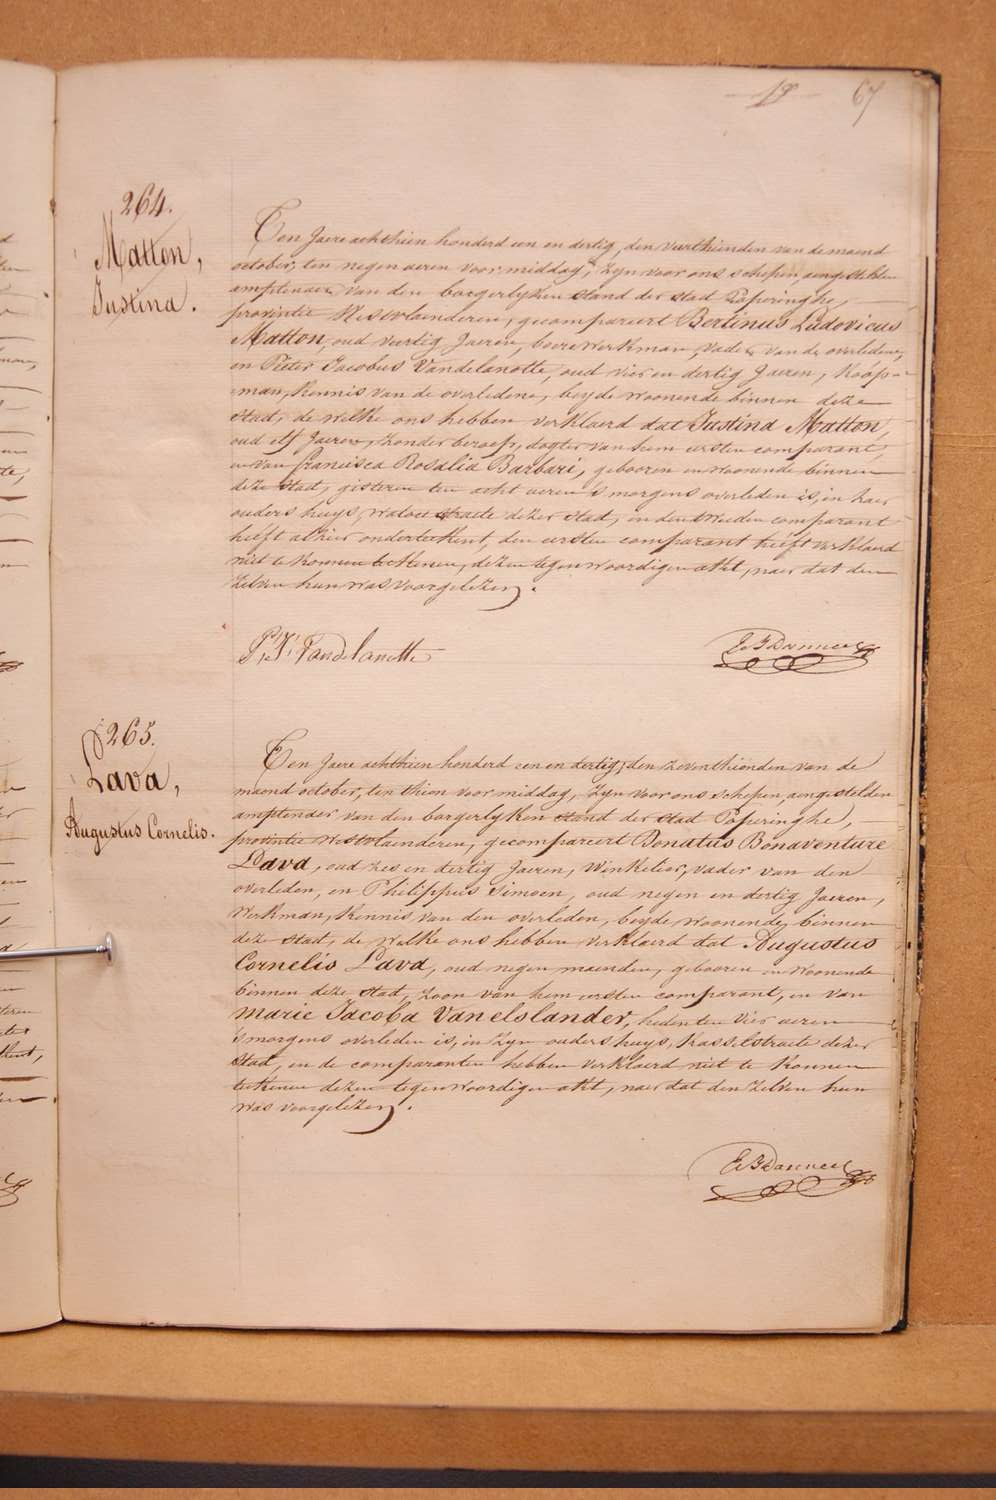 67
264.
Matton,
Justina.
Ten Jaere achthien honderd een en dertig, den veerthienden van de maend
october, ten negen ueren voormiddag, zyn voor ons schepen, aengestelden
amptenaer van den borgerlyken stand der stad Poperinghe,
provintie Westvlaenderen, gecompareert Bertinus Ludovicus
Matton, oud veertig Jaeren, boere werkman, vader van de overledene,
en Pieter Jacobus Vandelanotte, oud vier en dertig Jaeren, koop-
man, kennis van de overledene, beyde woonende binnen deze
stad, de welke ons hebben verklaerd dat Justina Matton,
oud elf Jaeren, zonder beroep, dogter van hem eersten comparant,
en van francisca Rosalia Barbari, gebooren en woonende binnen
deze stad, gisteren ten acht ueren 's morgens overleden is, in haer
ouders huys, straete dezer stad, en den tweeden comparant
heeft alhier onderteekent, den eersten comparant heeft verklaerd
niet te konnen teekenen, dezen tegenwoordigen akt, naer dat den
zelven hun was voorgelezen.
P. J. Vandelanotte
265.
Lava,
Augustus Cornelis.
Ten Jaere achthien honderd een en dertig, den zeventhienden van de
maend october, ten thien voormiddag, zyn voor ons schepen, aengestelden
amptenaer van den borgerlyken stand der stad Poperinghe,
provintie Westvlaenderen, gecompareert Donatus Bonaventure
Lava, oud zes en dertig Jaeren, winkelier, vader van den
overleden, en Philippus Simoen, oud negen en dertig Jaeren,
werkman, kennis van den overleden, beyde woonende binnen
deze stad, de welke ons hebben verklaerd dat Augustus
Cornelis Lava, oud negen maenden, gebooren en woonende
binnen deze stad, zoon van hem eersten comparant, en van
marie Jacoba Vanelslander, heden ten vier ueren
's morgens overleden is, in zyn ouders huys, kasselstraete dezer
stad, en de comparanten hebben verklaerd niet te konnen
teekenen dezen tegenwoordigen akt, naer dat den zelven hun
was voorgelezen.